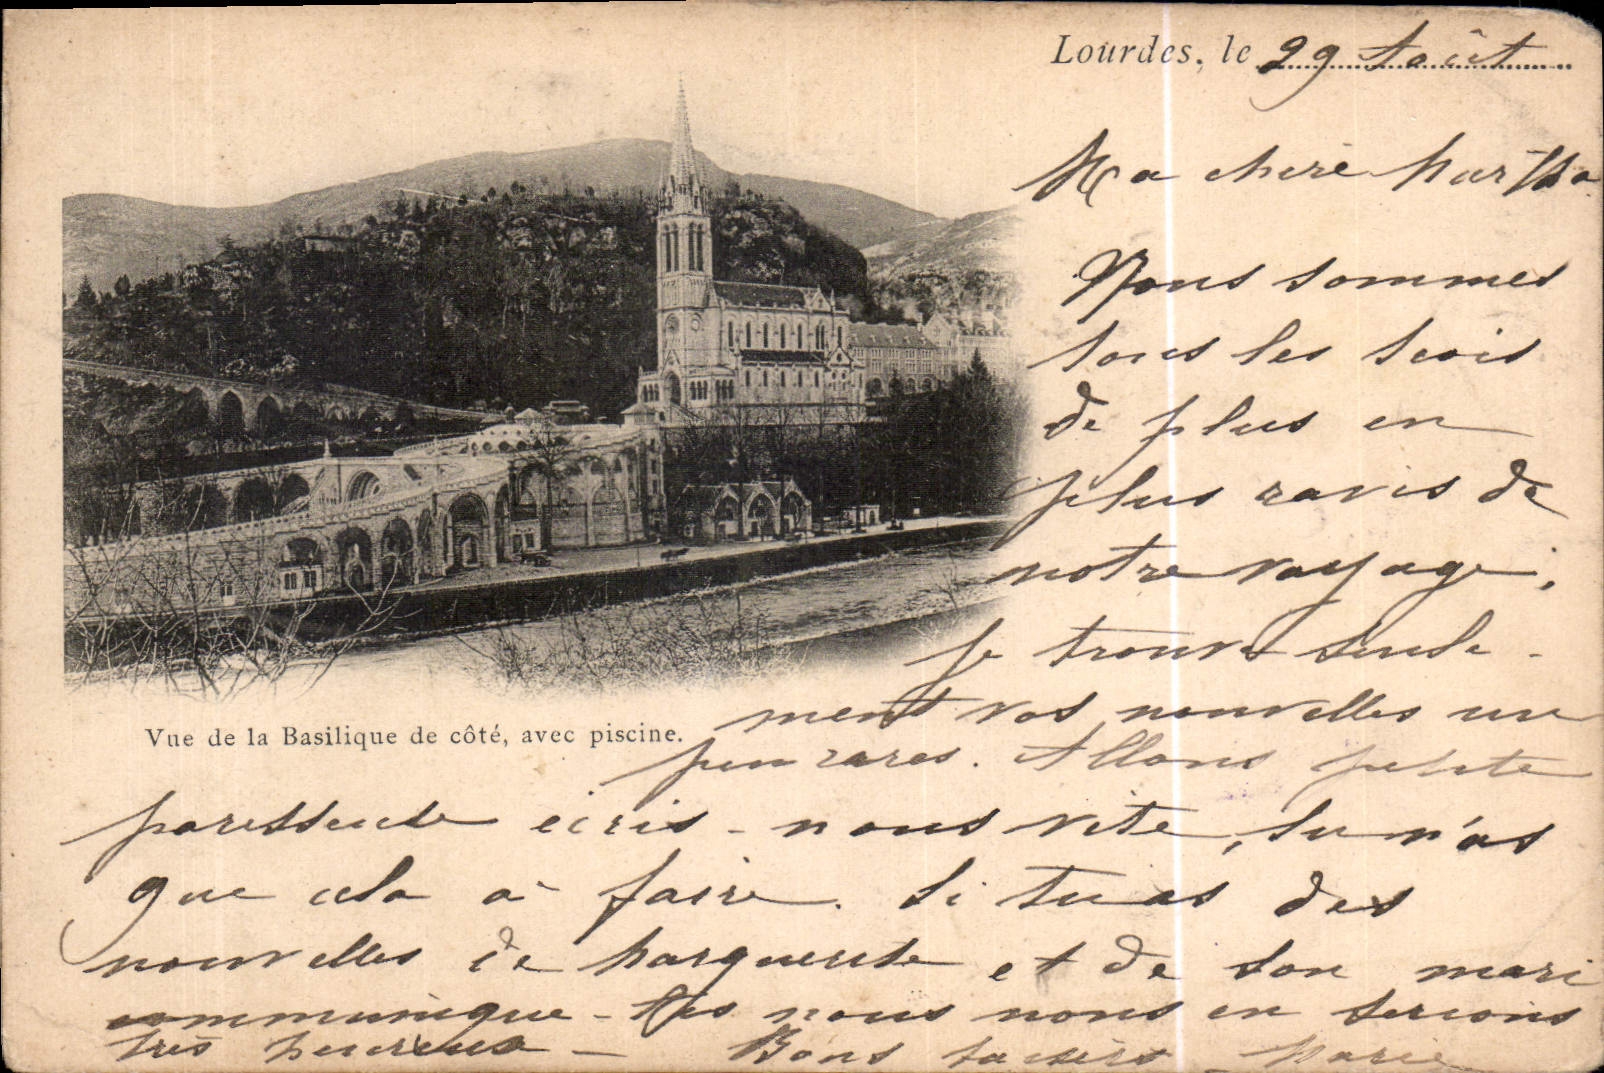 Lourdes, le 29 Août
Ma chère Martha
Nous sommes
tous les trois
de plus en
plus ravis de
notre voyage,
je trouve seule-
ment vos nouvelles un
peu rares. Allons petite
Vue de la Basilique de côté, avec piscine.
paresseuse écris-nous vite, tu n'as
que cela à faire. Si tu as des
nouvelles de Marguerite et de son mari
communique-les nous nous en serions
très heureux - Bons baisers - Marie